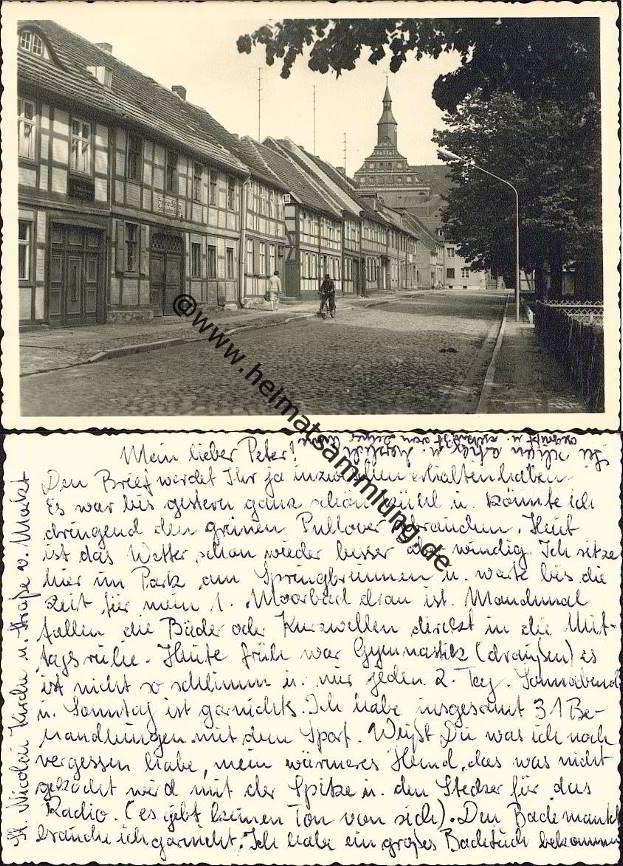 ©www.heimatsammlung.de
Mein lieber Peter!
Den Brief werdet Ihr ja inzwischen erhalten haben.
Es war bis gestern ganz schön kühl u. könnte ich
dringend den grünen Pullover gebrauchen. Heut
ist das Wetter schon wieder besser aber windig. Ich sitze
hier im Park am Springbrunnen u. warte bis die
Zeit für mein 1. Moorbad dran ist. Manchmal
fallen die Bäder oder Kurzwellen direkt in die Mit-
tagsruhe. Heute früh war Gymnastik (draußen) es
ist nicht so schlimm u. nur jeden 2. Tag. Sonnabend
u. Sonntag ist garnichts. Ich habe insgesamt 31 Be-
handlungen mit dem Sport. Weißt Du was ich noch
vergessen habe, mein wärmeres Hemd, das was nicht
gekocht wird mit der Spitze u. den Stecker für das
Radio. (es gibt keinen Ton von sich). Den Bademantel
brauche ich garnicht. Ich habe ein großes Badetuch bekommen
St. Nicolai Kirche u. Straße v. Markt